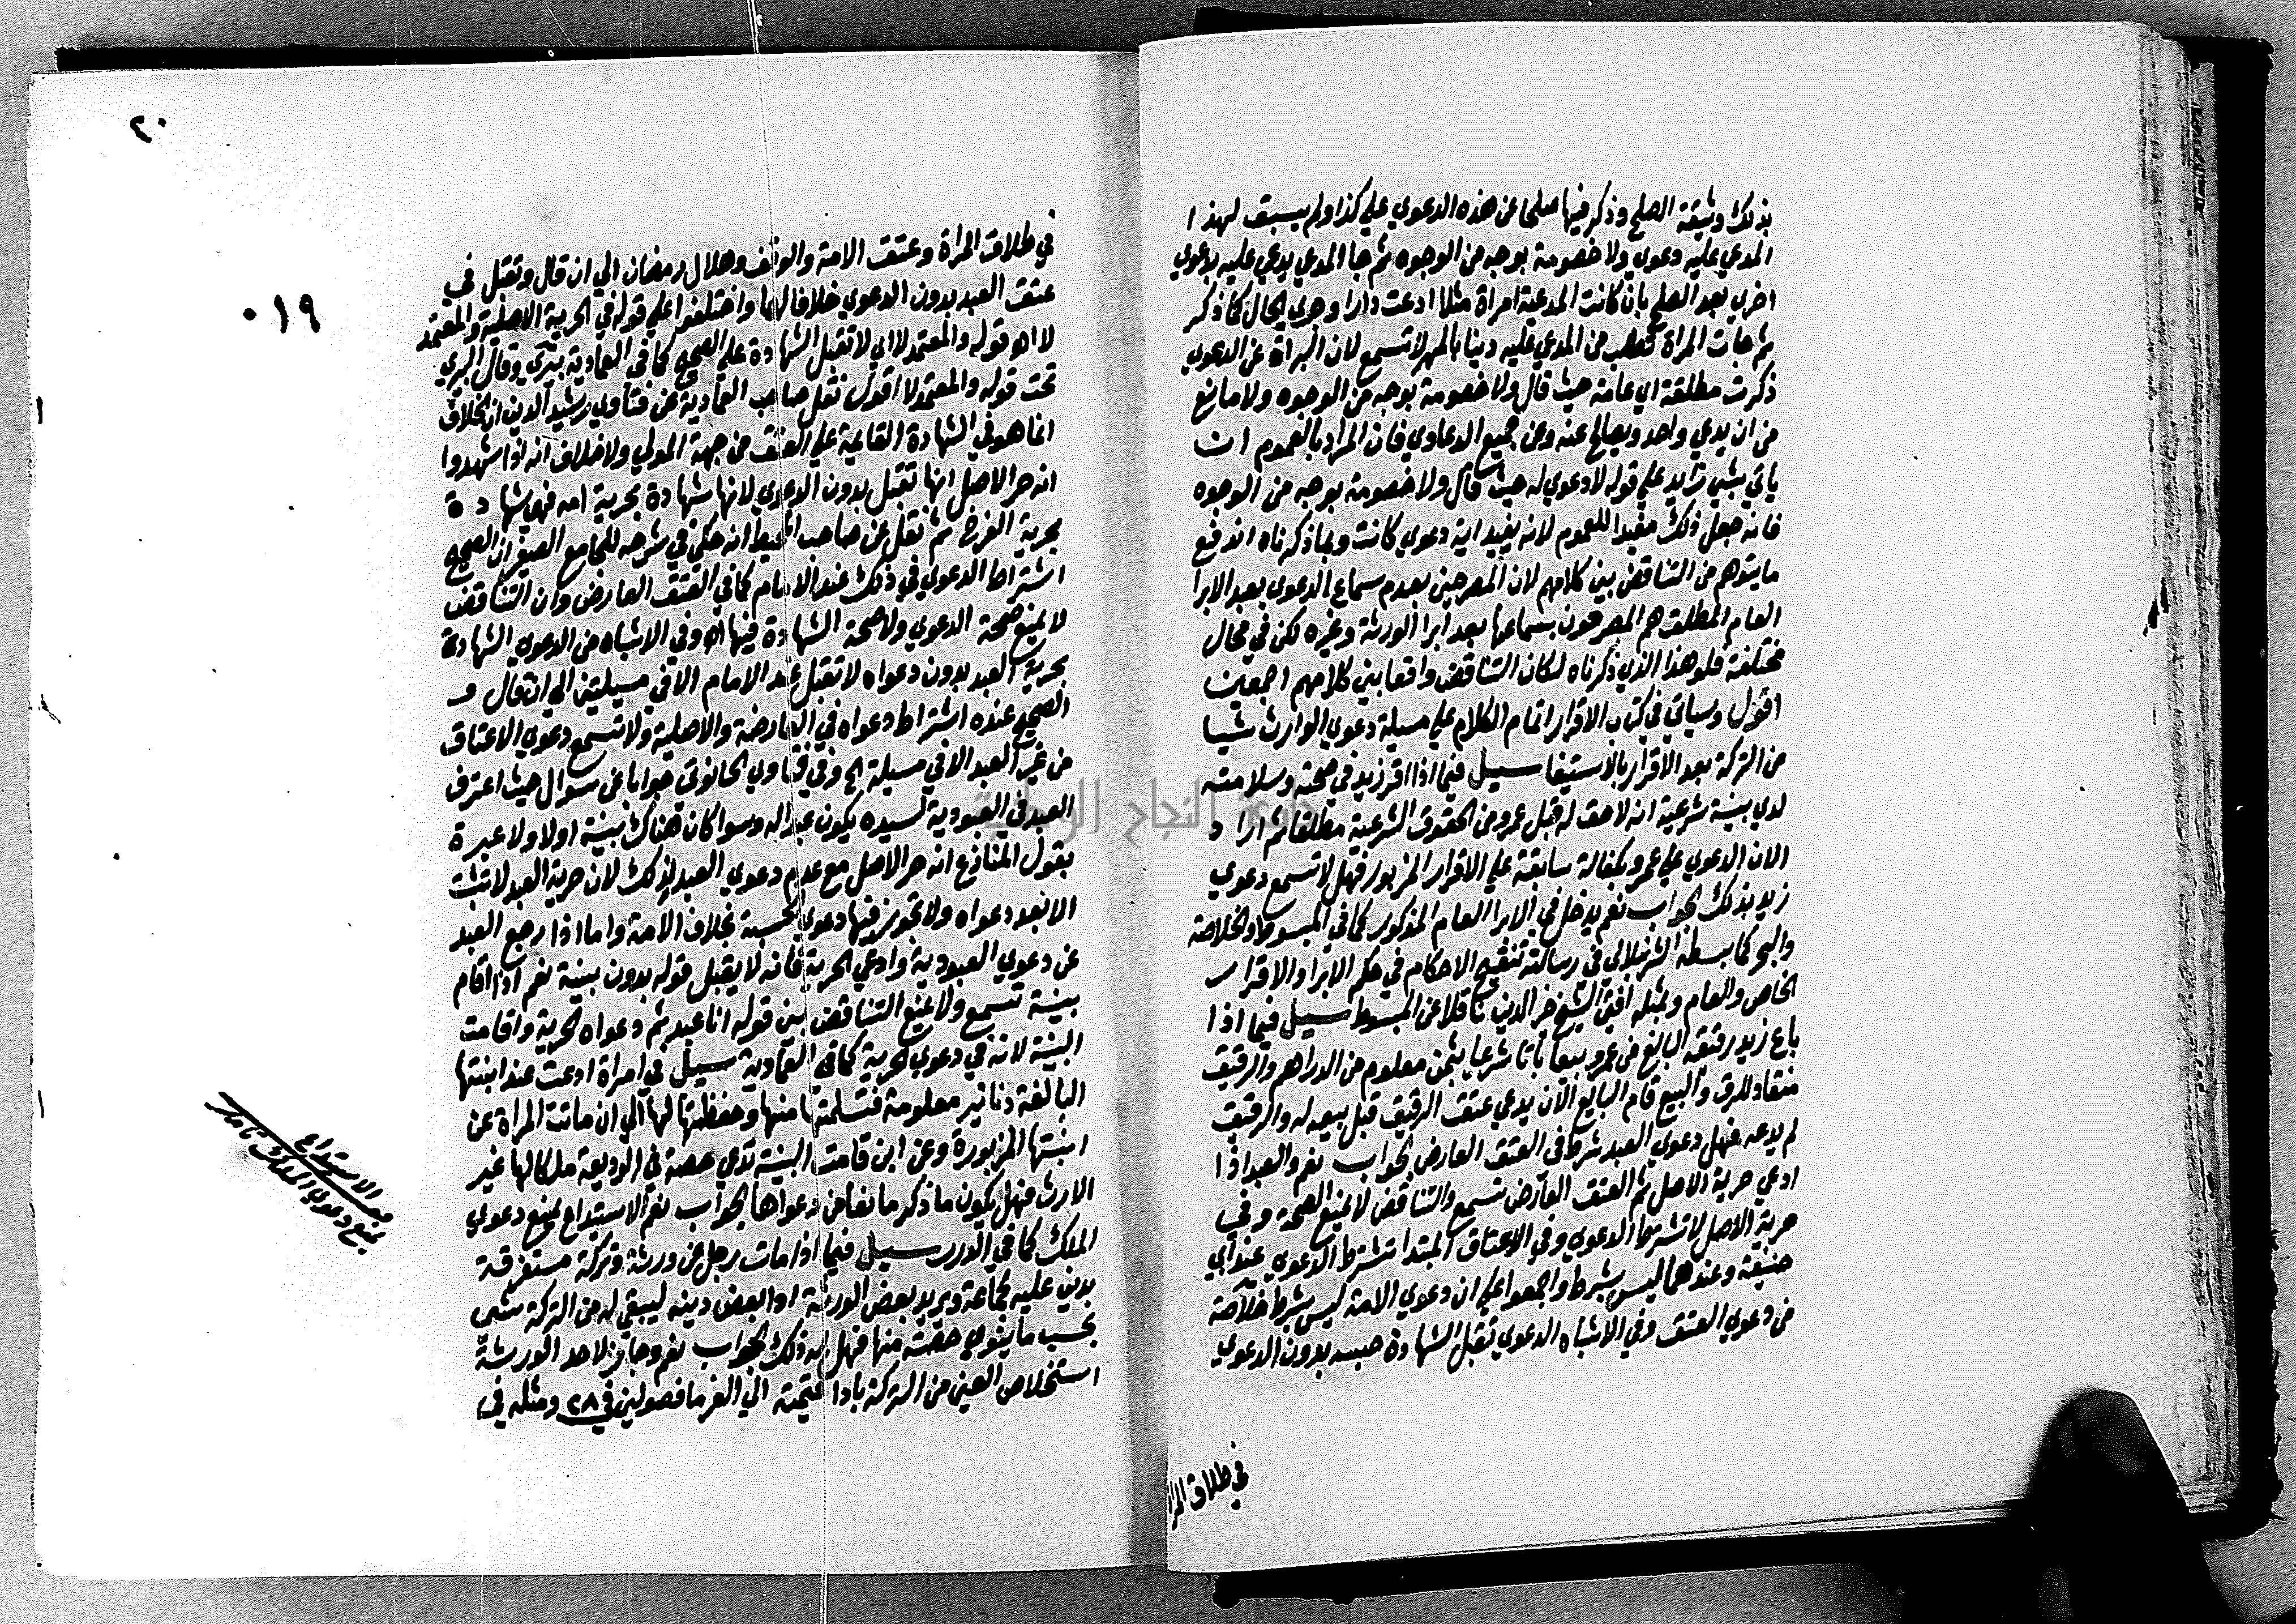 بذلك وثيقة الصلح وذكر فيها صلحا عن هذه الدعوي علي كذا ولم يسبق لهذا
المدعي عليه دعوي ولا خصومة بوجه من الوجوه ثم جا المدعي يدعي عليه بدعوي
اخري بعد الصلح بان كانت المدعية امراة مثلا ادعت دارا وجري الحال كما ذكر
ثم جات المراة تطلب من المدعي عليه دينا بالمهر لا تسمع لان البراة عن الدعوي
ذكرت مطلقة اي عامة حيث قال ولا خصومة بوجه من الوجوه ولا مانع
من ان يدعي واحد ويصالح عنه وعن جميع الدعاوي فان المراد بالعموم ان
ياتي بشي زايد علي قوله لا دعوي له حيث قال ولا خصومة بوجه من الوجوه
فانه جعل ذلك مفيدا للعموم لانه يفيد اية دعوي كانت وبما ذكرناه اندفع
ما يتوهم من التناقض بين كلامهم لان المصرحين بعدم سماع الدعوي بعد الابرا
العام المطلق هم المصرحون بسماعها بعد ابرا الورثة وغيره لكن في محال
مختلفة فلو هذا الذي ذكرناه لكان التناقض واقعا بين كلامهم اجمعين
اقول وسياتي في كتاب الاقرار اتمام الكلام علي مسيلة دعوي الوارث شيا
من التركة بعد الاقرار بالاستيفا سيل فيما اذا اقر زيد في صحته وسلامته
لدي بينة شرعية انه لا حق له قبل عمرو من الحقوق الشرعية مطلقا ثم اراد
الان الدعوي علي عمرو بكفالة سابقة علي الاقرار المزبور فهل لا تسمع دعوي
زيد بذلك الجواب نعم يدخل في الابرا العام المذكور كما في المبسوط والخلاصة
والبحر كما بسطه الشرنبلالي في رسالته تنقيح الاحكام في حكم الابرا والاقرار
الخاص والعام وبمثله افتي الشيخ خير الدين ناقلا عن المبسوط سيل فيما اذا
باع زيد رقيقه البالغ من عمرو بيعا باتا شرعيا بثمن معلوم من الدراهم والرقيق
منقاد للرق والبيع قام البايع الان يدعي عتق الرقيق قبل بيعه له والرقيق
لم يدعه فهل دعوي العبد شرط في العتق العارض الجواب نعم والعبد اذا
ادعي حرية الاصل ثم العتق العارض تسمع والتناقض لا يمنع الصحة وفي
حرية الاصل لا تشترط الدعوي وفي الاعتاق المبتدا تشترط الدعوي عند ابي
حنيفة وعندهما ليس بشرط واجمعوا علي ان دعوي الامة ليس بشرط خلاصة
من دعوي العتق وفي الاشباه الدعوي تقبل الشهادة حسبه بدون الدعوي
في طلاق المرا
٢٠
٠١٩
في طلاق المراة وعتق الامة والوقف وهلال رمضان الي ان قال وتقبل في
عتق العبد بدون الدعوي خلافا لهما واختلفوا علي قوله في الحرية الاصلية والمعتمد
لا اه قوله والمعتمد لا اي لا تقبل الشهادة علي الصحيح كما في العمادية بيري وقال البيري
تحت قوله والمعتمد لا اقول نقل صاحب العمادية عن فتاوي رشيد الدين ان الخلاف
انما هو في الشهادة القايمة علي العتق من جهة المولي ولا خلاف انه اذا شهدوا
انه حر الاصل انها تقبل بدون الدعوي لانها شهادة بحرية امه فهي شهادة
بحرية الفرج ثم نقل عن صاحب المحيط انه حكي في شرحه للجامع الصغير ان الصحيح
اشتراط الدعوي في ذلك عند الامام كما في العتق العارض وان التناقض
لا يمنع صحة الدعوي ولا صحة الشهادة فيها اه وفي الاشباه من الدعوي الشهادة
بحرية العبد بدون دعواه لا تقبل عند الامام الا في مسيلتين الي ان قال و
الصحيح عنده اشتراط دعواه في العارضة والاصلية ولا تسمع دعوي الاعتاق
من غير العبد الا في مسيلة الخ وفي فتاوي الحانوتي جوابا عن سوال حيث اعترف
العبد في العبودية لسيده يكون عبدا له وسوا كان هناك بينة اولا ولا عبرة
بقول المنازع انه حر الاصل مع عدم دعوي العبد لذلك لان حرية العبد لا تثبت
الا بعد دعواه ولا تجوز فيها دعوي الحسبة بخلاف الامة واما اذا رجع العبد
عن دعوي العبودية وادعي الحرية فانه لا يقبل قوله بدون بينة نعم اذا اقام
بينة تسمع ولا يمنع التناقض بين قوله انا عبد ثم دعواه الحرية واقامت
البينة لانه في دعوي الحرية كما في العمادية سيل في امراة ادعت عند ابنتها
البالغة دنانير معلومة فتسلمتها منها وحفظتها لها الي ان ماتت المراة عن
ابنتها المزبورة وعن ابن قامت البينة تدعي حصة في الوديعة ملكا لها غير
الارث فهل يكون ما ذكر مانعا من دعواها الجواب نعم الاستيداع يمنع دعوي
الملك كما في الدرر سيل فيما اذا مات رجل عن ورثة وتركة مستغرقة
بدين عليه لجماعة ويريد بعض الورثة ادا بعض دينه ليبقي له من التركة شي
بحسب ما ينوي حصته منها فهل له ذلك الجواب نعم وجاز لاحد الورثة
استخلاص العين من التركة بادا قيمته الي الغرما فصولين في ٢٨ ومثله في
الاستيداع
يمنع دعوي الملك